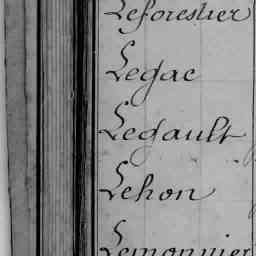 Leforestier
Legac
Legault
Lehon
Lemonnier